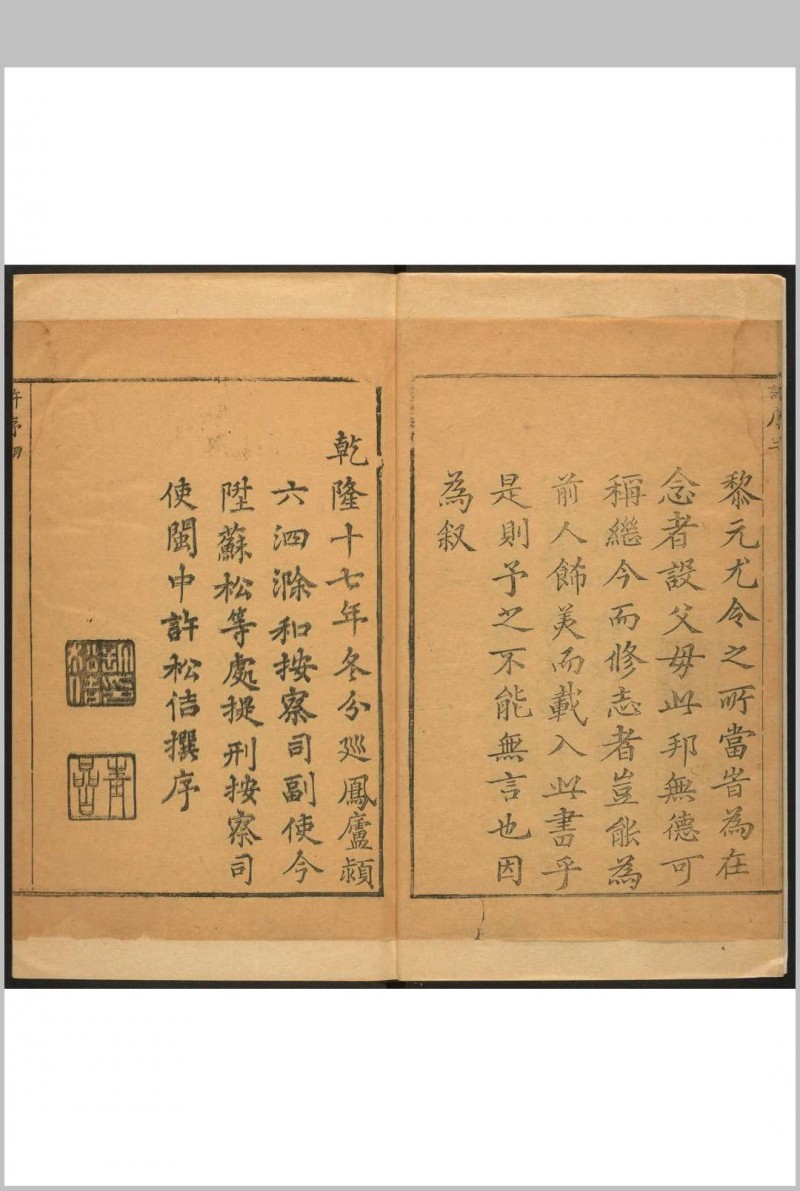 黎元尤令之所當眷為在
念者設父母此邦無德可
稱繼今而修志者豈能為
前人飾美而載入此書乎
是則予之不能無言也因
為叙
乾隆十七年冬分廵鳳廬頴
六泗滁和按察司副使今
陞蘇松等處提刑按察司
使閩中許松佶撰序